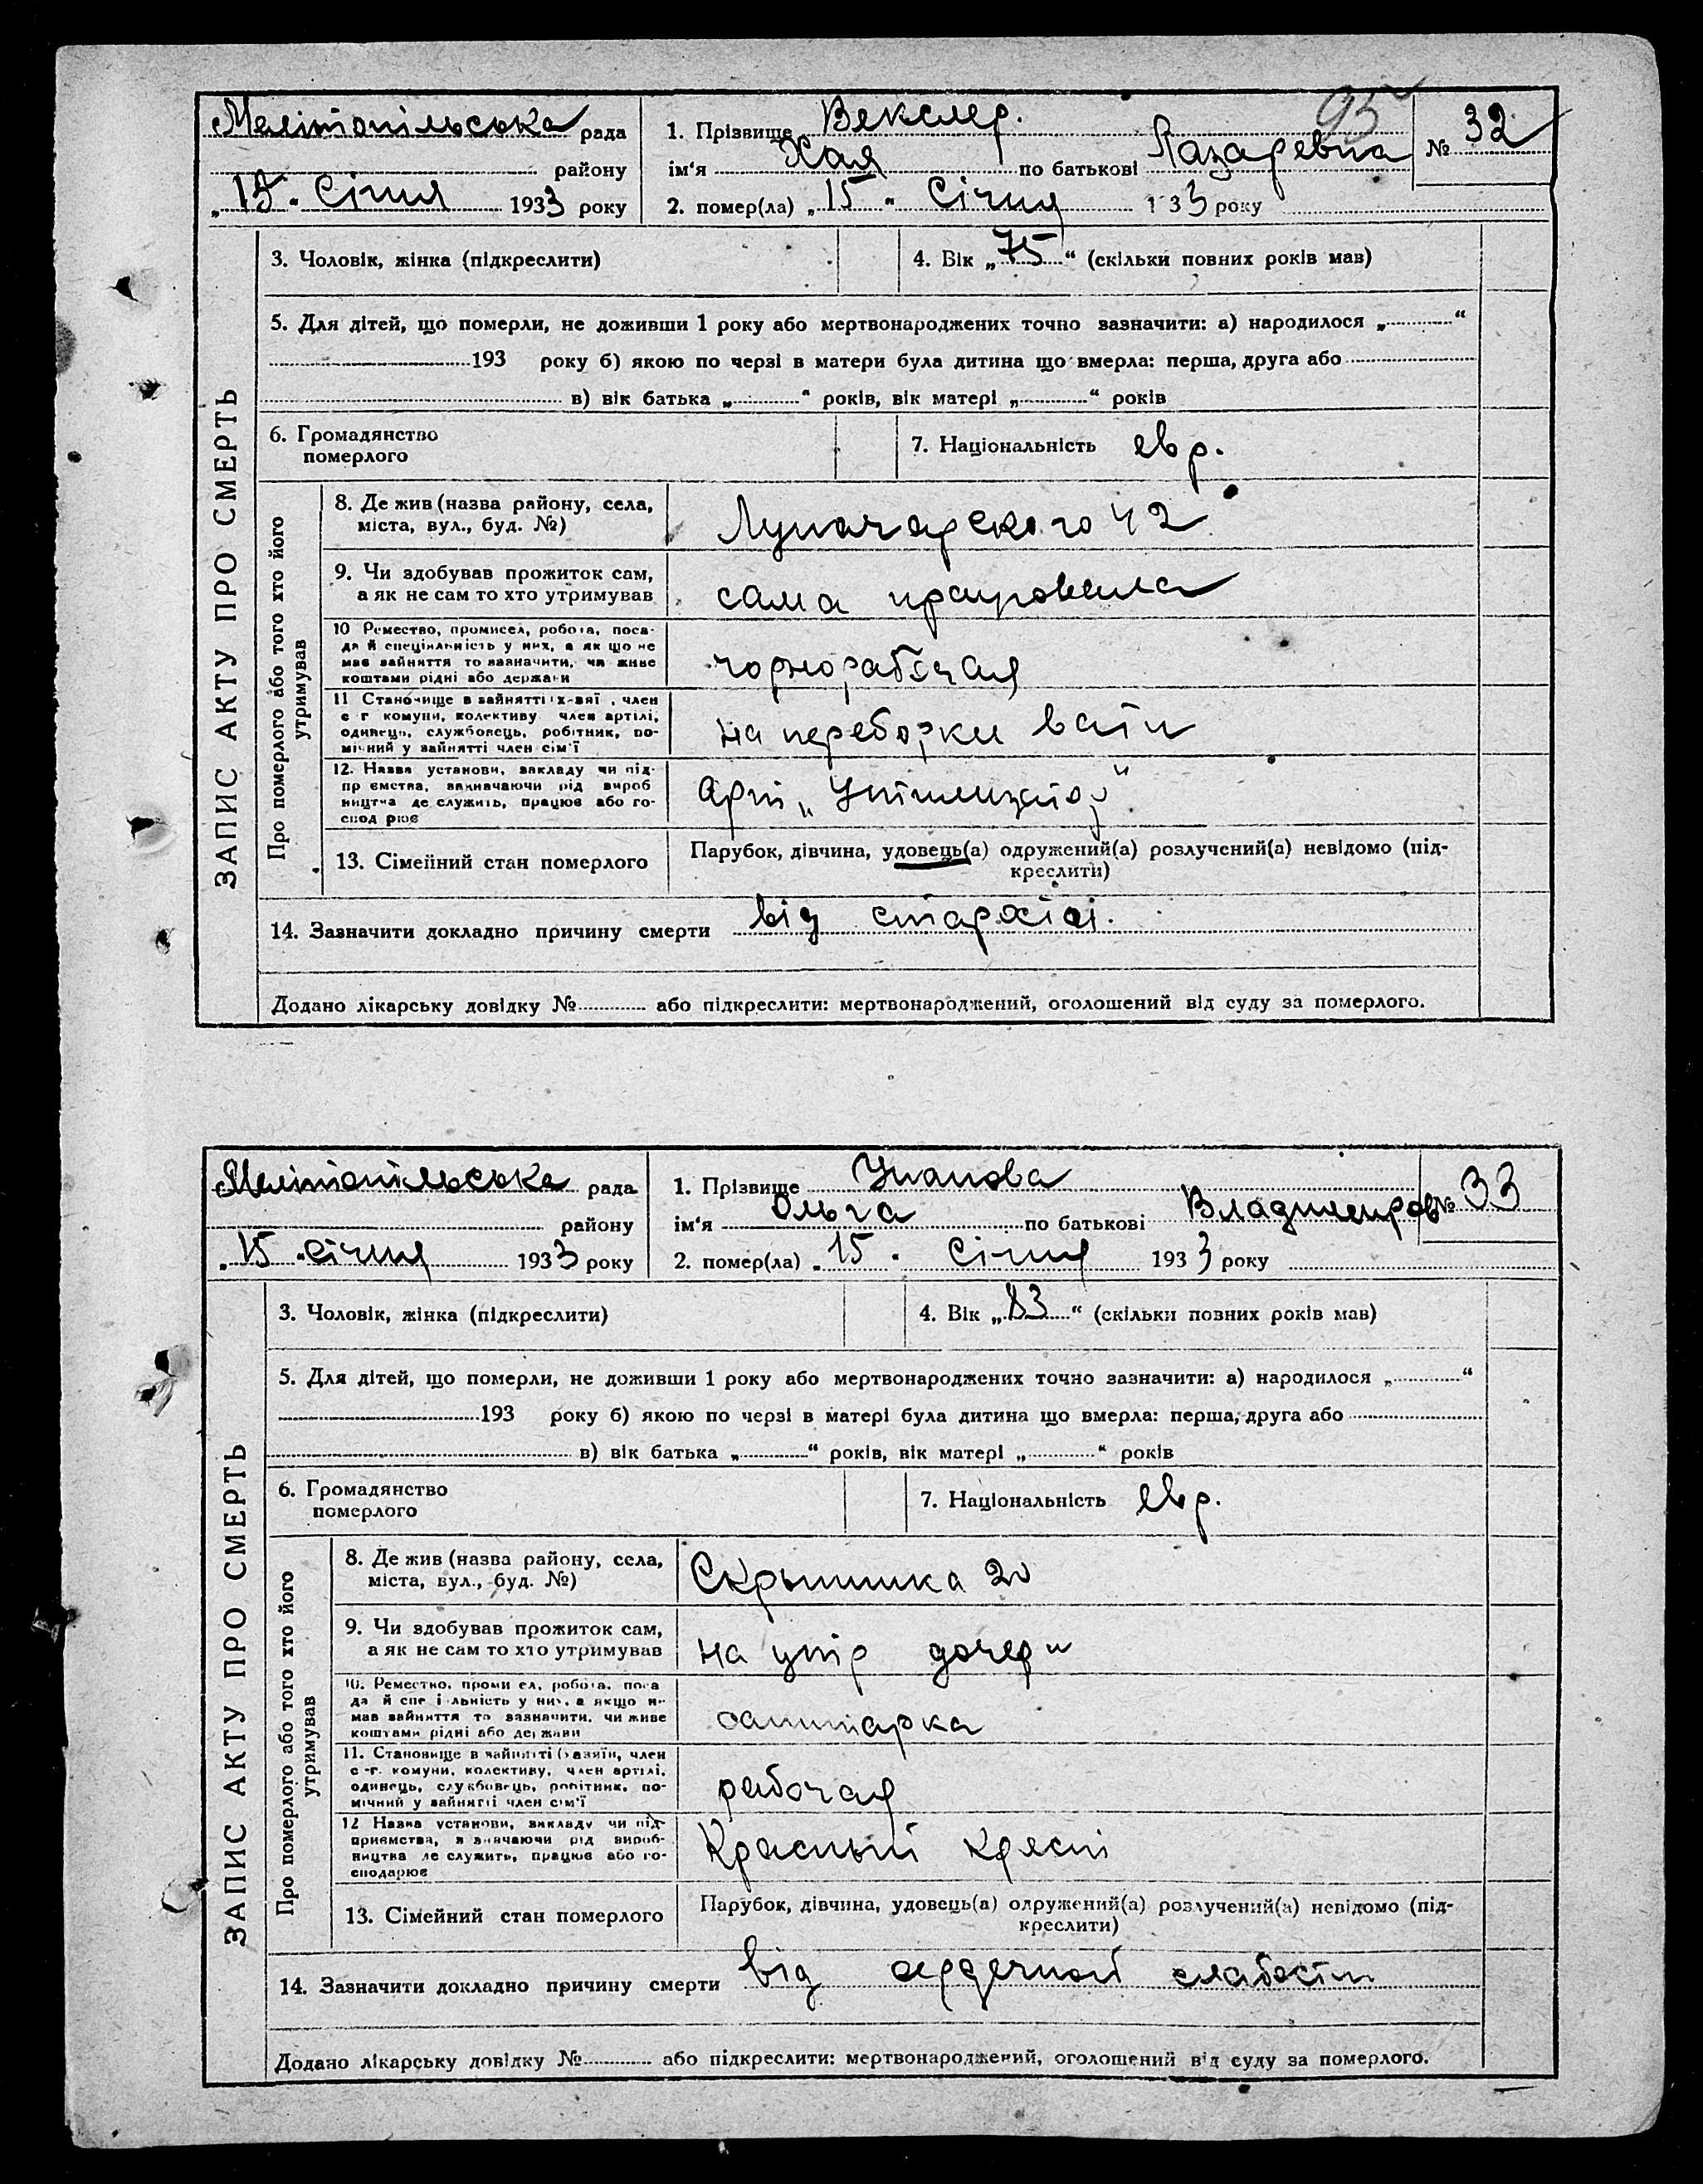 95
Мелітопільська рада
району
„15" Січня 1933 року
1. Прізвище Векслер.
ім'я Хая по батькові Лазаревна
№ 32
2. помер(ла) „15" Січня 1 33 року
ЗАПИС АКТУ ПРО СМЕРТЬ
3. Чоловік, жінка (підкреслити)
4. Вік „75" (скільки повних років мав)
5. Для дітей, що померли, не доживши 1 року або мертвонароджених точно зазначити: а) народилося „ "
193 року б) якою по черзі в матери була дитина що вмерла: перша, друга або
в) вік батька „ " років, вік матері „ " років
6. Громадянство
померлого
7. Національність евр.
Про померлого або того хто його
утримував
8. Де жив (назва району, села,
міста, вул., буд. №)
Луначарского 42
9. Чи здобував прожиток сам,
а як не сам то хто утримував
сама працювала
10 Ремество, промисел, робота, поса-
да й спеціяльність у них, а як що не
має зайняття то зазначити, чи живе
коштами рідні або держави
чорнорабочая
11 Становище в зайнятті х-зяї , член
с г комуни, колективу член артілі,
одинець, службовець, робітник, по-
мічний у зайнятті член сім'ї
на переборки вати
12. Назва установи, закладу чи під-
пр ємства, зазначаючи рід вироб
ництва де служить, працює або го-
спод рює
Арт „Утилизатор"
13. Сімейний стан померлого
Парубок, дівчина, удовець(а) одружений(а) розлучений(а) невідомо (під-
креслити)
14. Зазначити докладно причину смерти від старости.
Додано лікарську довідку № або підкреслити: мертвонароджений, оголошений від суду за померлого.
Мелітопільська рада
району
„15" січня 1933 року
1. Прізвище
ім'я Ольга по батькові Владимиров
№ 33
2. помер(ла) „15" Січня 1933 року
ЗАПИС АКТУ ПРО СМЕРТЬ
3. Чоловік, жінка (підкреслити)
4. Вік „83" (скільки повних років мав)
5. Для дітей, що померли, не доживши 1 року або мертвонароджених точно зазначити: а) народилося „ "
193 року б) якою по черзі в матері була дитина що вмерла: перша, друга або
в) вік батька „ " років, вік матері „ " років
6. Громадянство
померлого
7. Національність евр.
Про померлого або того хто його
утримував
8. Де жив (назва району, села,
міста, вул., буд. №)
Скрыпника 20
9. Чи здобував прожиток сам,
а як не сам то хто утримував
на утр дочери
10. Ремество, проми ел, робота, поса
да й спе і льність у них, а якщо н-
має зайняття то зазначити, чи живе
коштами рідні або держави
санитарка
11. Становище в зайнятті (хазяїн, член
с -г. комуни, колективу, член артілі,
одинець, службовець, робітник, по-
мічний у зайнятті член сім'ї
рабочая
12 Назва установи, закладу чи під-
приємства, з значаючи рід вироб-
ництва де служить, працює або го-
сподарює
Красный крест
13. Сімейний стан померлого
Парубок, дівчина, удовець(а) одружений(а) розлучений(а) невідомо (під-
креслити)
14. Зазначити докладно причину смерти від сердечной слабости
Додано лікарську довідку № або підкреслити: мертвонароджений, оголошений від суду за померлого.